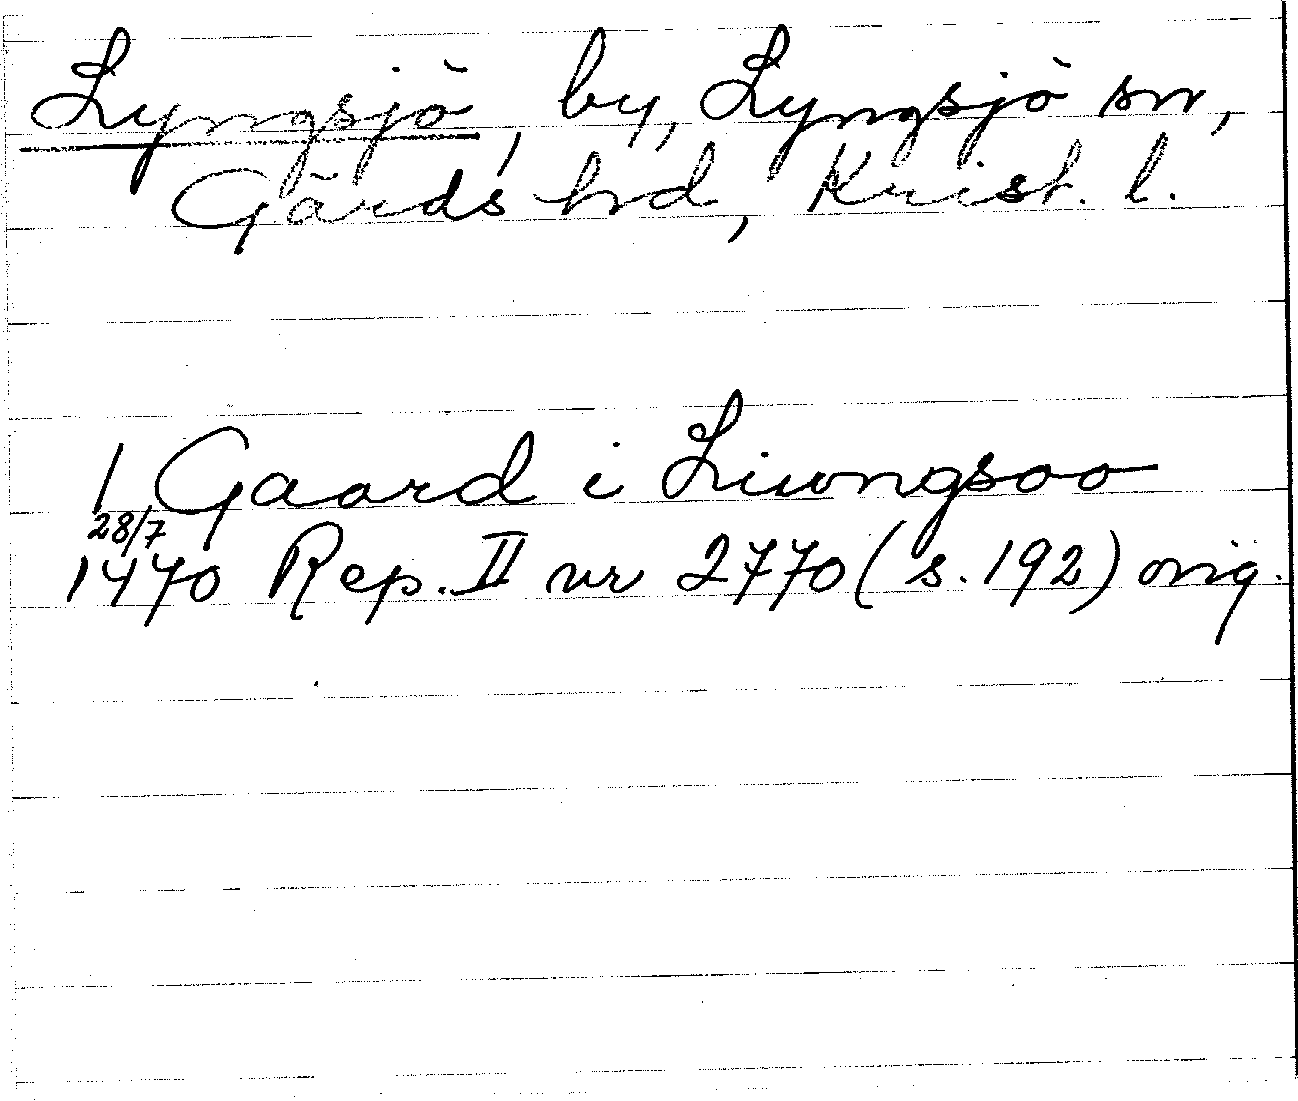 Lyngsjö, by, Lyngsjö sn,
Gärds hd, Krist. l.
1 Gaard i Liungsoo
28/7
1470 Rep. II nr 2770 (s. 192) orig.